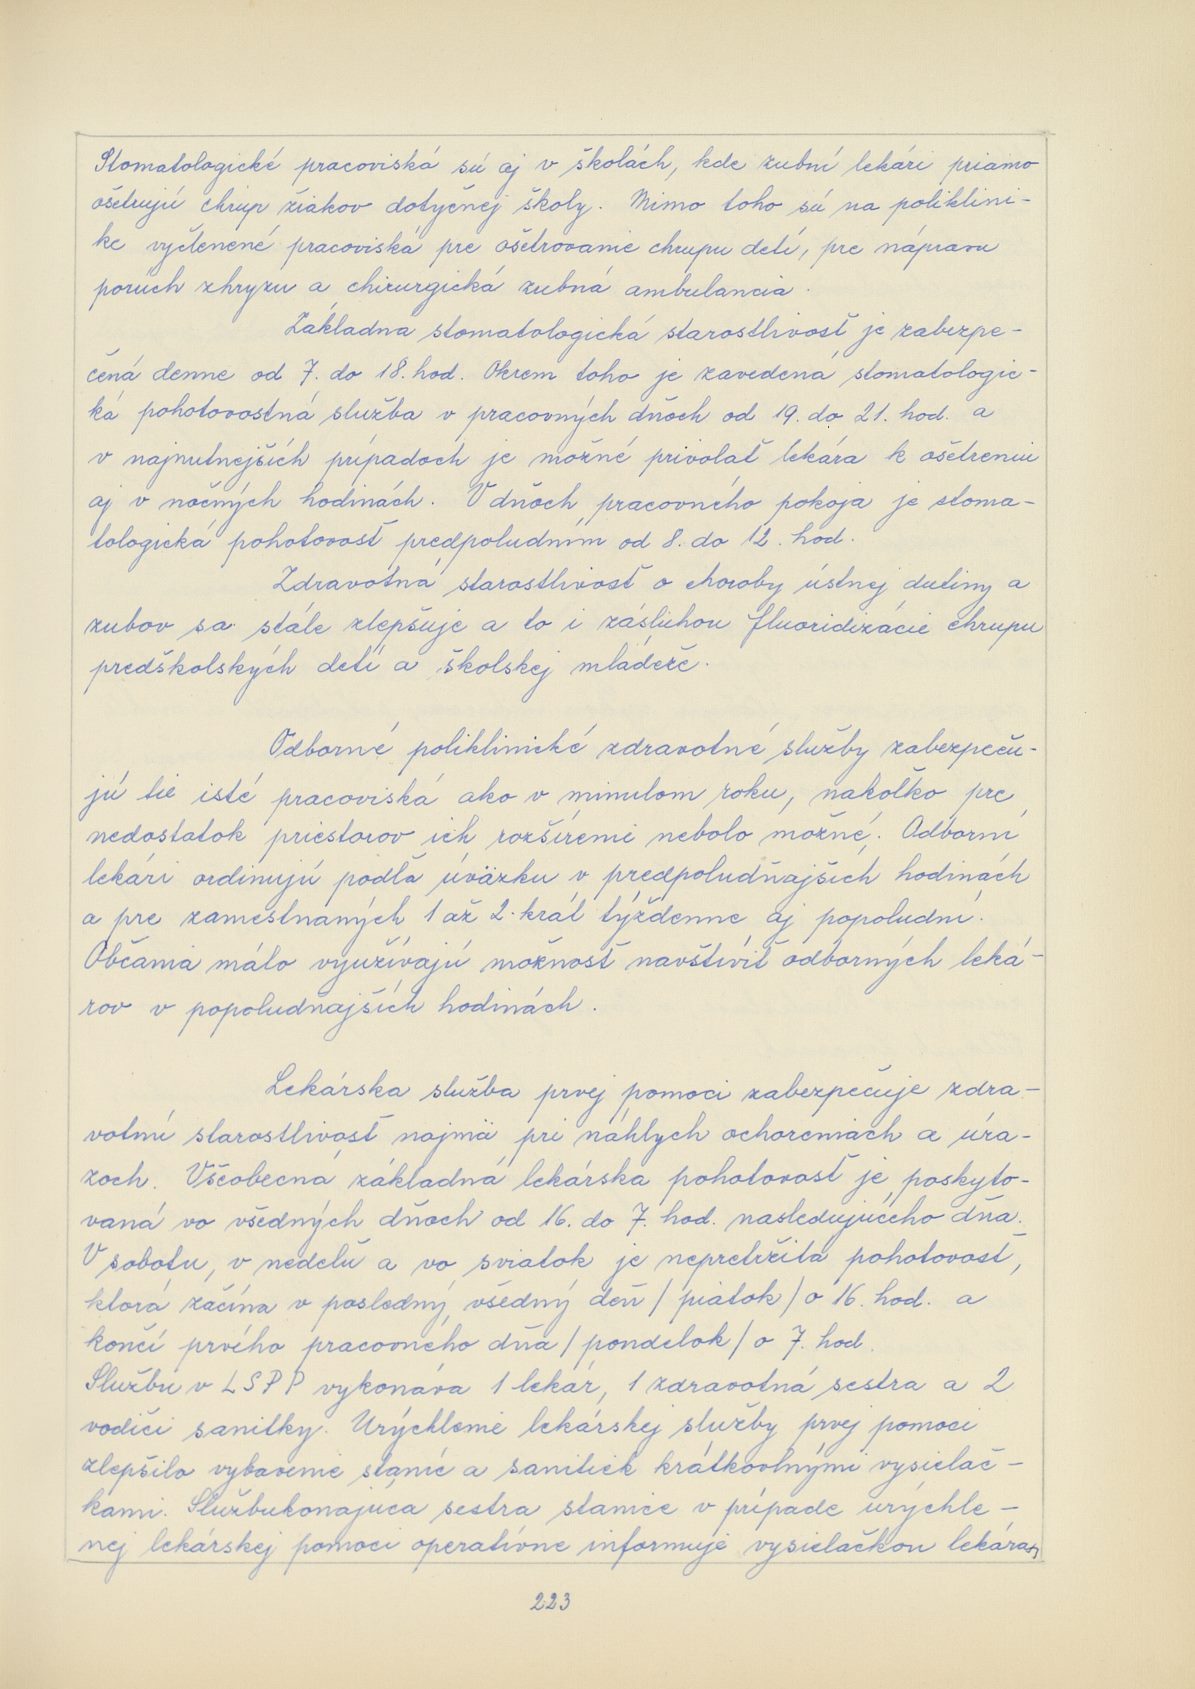 Stomatologické pracoviská sú aj v školách, kde zubní lekári priamo
ošetrujú chrup žiakov dotyčnej školy. Mimo toho sú na polikлini-
ke vyčlenené pracoviská pre ošetrovanie chrupu detí, pre nápravu
porúch zhryzu a chirurgická zubná ambulancia.
Základná stomatologická starostlivosť je zabezpe-
čená denne od 7. do 18. hod. Okrem toho je zavedená stomatologic-
ká pohotovostná služba v pracovných dňoch od 19. do 21. hod. a
v najnutnejších prípadoch je možné privolať lekára k ošetreniu
aj v nočných hodinách. V dňoch pracovného pokoja je stoma-
tologická pohotovosť predpoludním od 8. do 12. hod.
Zdravotná starostlivosť o choroby ústnej dutiny a
zubov sa stále zlepšuje a to i zásluhou fluoridizácie chrupu
predškolských detí a školskej mládeže.
Odborné poliklinické zdravotné služby zabezpeču-
jú tie isté pracoviská ako v minulom roku, nakoľko pre
nedostatok priestorov ich rozšírenie nebolo možné. Odborní
lekári ordinujú podľa úväzku v predpoludňajších hodinách
a pre zamestnaných 1 až 2. krát týždenne aj popoludní.
Občania málo využívajú možnosť navštíviť odborných leká-
rov v popoludňajších hodinách.
Lekárska služba prvej pomoci zabezpečuje zdra-
votnú starostlivosť najmä pri náhlych ochoreniach a úra-
zoch. Všeobecná základná lekárska pohotovosť je poskyto-
vaná vo všedných dňoch od 16. do 7. hod. nasledujúceho dňa.
V sobotu, v nedeľu a vo sviatok je nepretržitá pohotovosť,
ktorá začína v posledný všedný deň /piatok/ o 16. hod. a
končí prvého pracovného dňa /pondelok/ o 7. hod.
Službu v LSPP vykonáva 1 lekár, 1 zdravotná sestra a 2
vodiči sanitky. Urýchlenie lekárskej služby prvej pomoci
zlepšilo vybavenie staníc a sanitiek krátkovlnnými vysielač-
kami. Službukonajúca sestra stanice v prípade urýchle-
nej lekárskej pomoci operatívne informuje vysielačkou lekára,
223